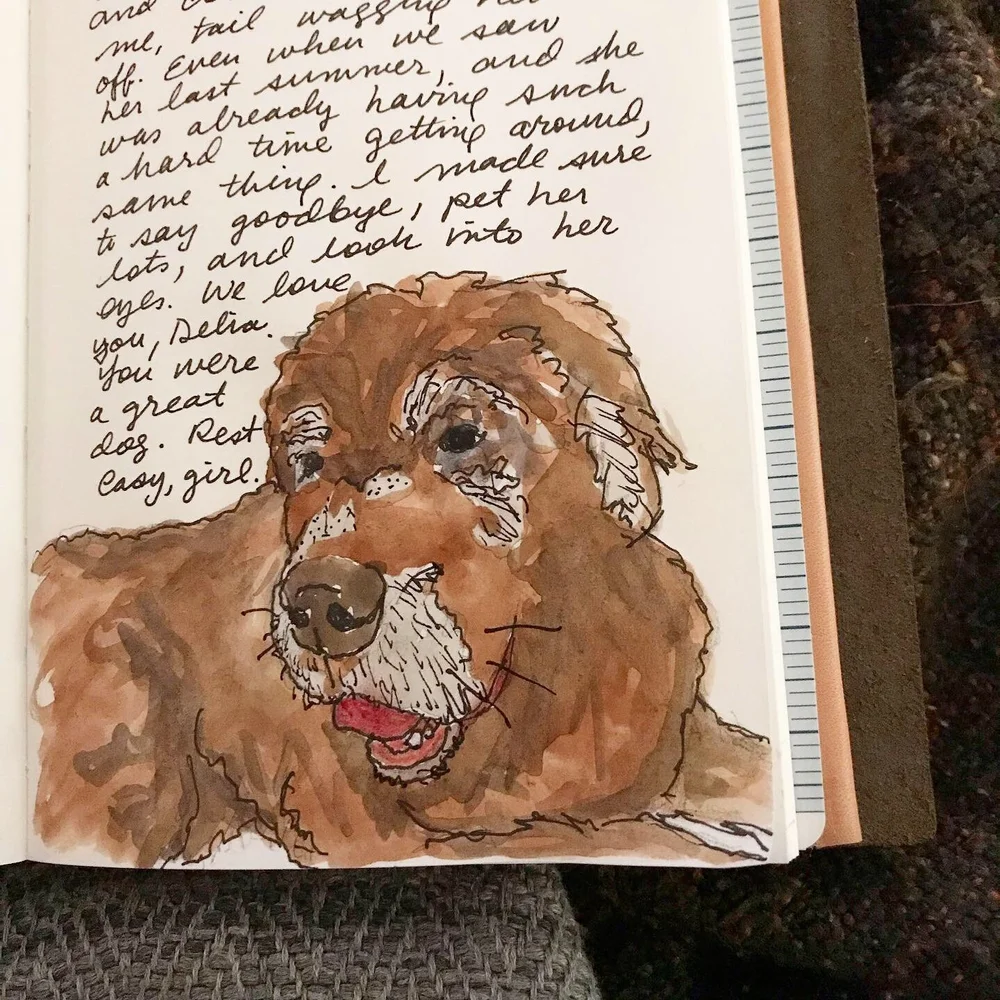 and
me, tail wagging her
off. Even when we saw
her last summer, and she
was already having such
a hard time getting around,
same thing. I made sure
to say goodbye, pet her
lots, and look into her
eyes. We love
you, Delia.
You were
a great
dog. Rest
easy, girl.